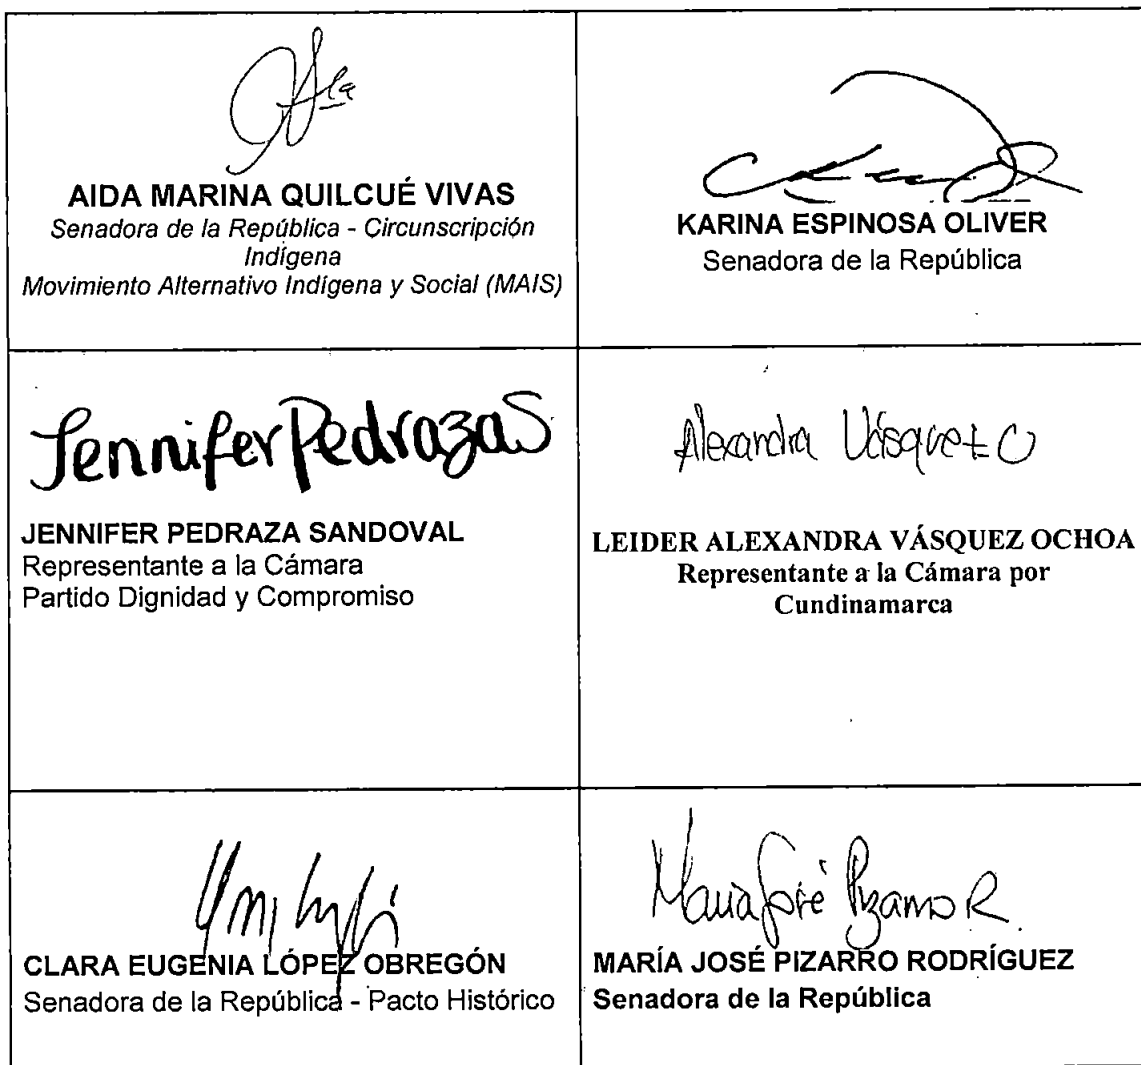 AIDA MARINA QUILCUÉ VIVAS
Senadora de la República - Circunscripción
Indígena
Movimiento Alternativo Indígena y Social (MAIS)
KARINA ESPINOSA OLIVER
Senadora de la República
Jennifer PedrazaS
JENNIFER PEDRAZA SANDOVAL
Representante a la Cámara
Partido Dignidad y Compromiso
Alexandra Vásquez O
LEIDER ALEXANDRA VÁSQUEZ OCHOA
Representante a la Cámara por
Cundinamarca
CLARA EUGENIA LÓPEZ OBREGÓN
Senadora de la República - Pacto Histórico
María José Pizarro R
MARÍA JOSÉ PIZARRO RODRÍGUEZ
Senadora de la República